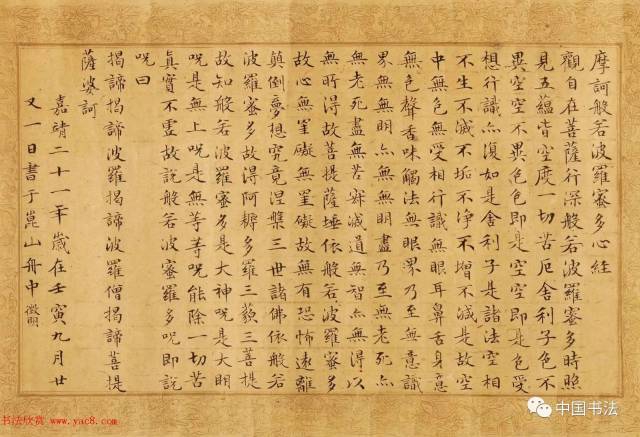 摩訶般若波羅蜜多心經
觀自在菩薩行深般若波羅蜜多時照
見五蘊皆空度一切苦厄舍利子色不
異空空不異色色即是空空即是色受
想行識亦復如是舍利子是諸法空相
不生不滅不垢不淨不增不減是故空
中無色無受相行識無眼耳鼻舌身意
無色聲香味觸法無眼界乃至無意識
界無無明亦無無明盡乃至無老死亦
無老死盡無苦寂滅道無智亦無得以
無所得故菩提薩埵依般若波羅蜜多
故心無罣礙無罣礙故無有恐怖遠離
顛倒夢想究竟涅槃三世諸佛依般若
波羅蜜多故得阿耨多羅三藐三菩提
故知般若波羅蜜多是大神咒是大明
咒是無上咒是無等等咒能除一切苦
真實不虛故說般若波蜜羅多咒即說
咒曰
揭諦揭諦波羅揭諦波羅僧揭諦菩提
薩婆訶
嘉靖二十一年歲在壬寅九月廿
又一日書于崑山舟中 徵明
书法欣赏 www.yac8.com
中国书法